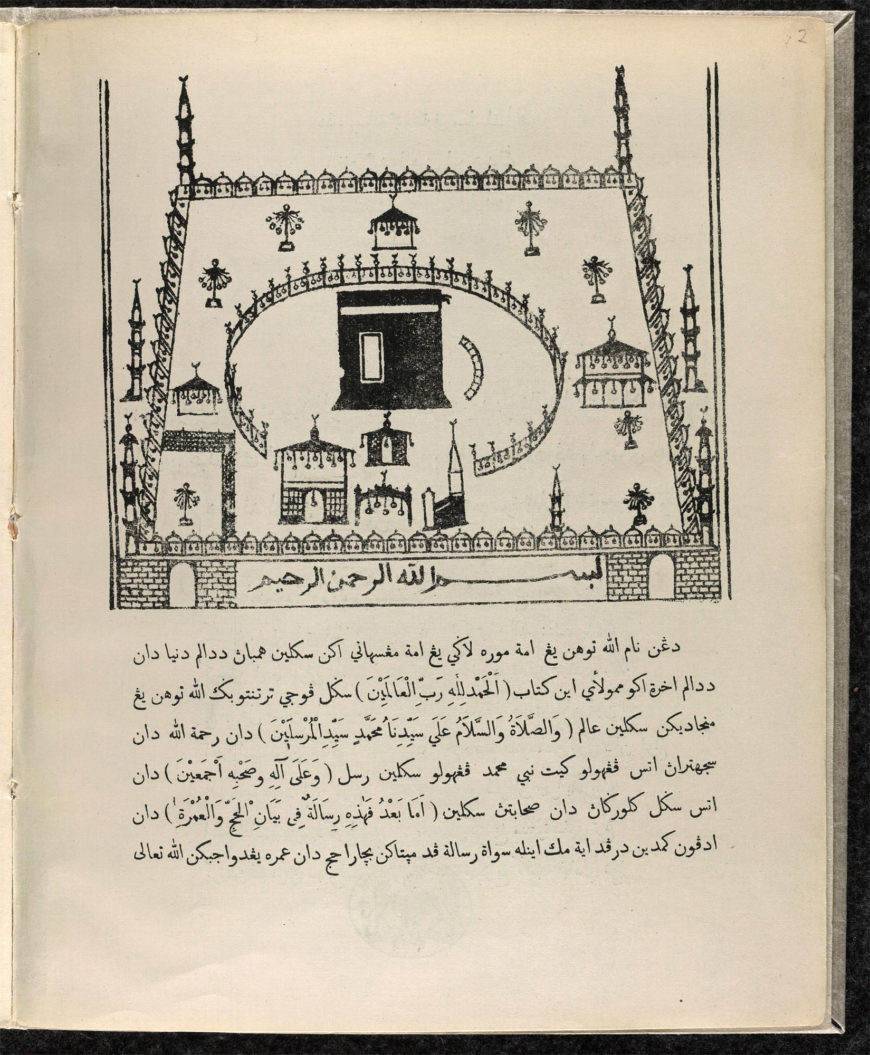 2
بسم الله الرحمن الرحيم
دڠن نام الله توهن يڠ امة موره لاڬي يڠ امة مڠسهاني اکن سکلين همباڽ ددالم دنيا دان
ددالم اخرة اکو ممولأي اين کتاب ( اَلْحَمْدُ لِلّٰهِ رَبِّ الْعَالَمِيْنَ ) سکل ڤوجي ترتنتو بݢ الله توهن يڠ
منجاديکن سکلين عالم ( وَالصَّلَاةُ وَالسَّلَامُ عَلَى سَيِّدِنَا مُحَمَّدٍ سَيِّدِ الْمُرْسَلِيْنَ ) دان رحمة الله دان
سجهتراڽ اتس ڤڠهولو کيت نبي محمد ڤڠهولو سکلين رسل ( وَعَلَى آلِهِ وَصَحْبِهِ اَجْمَعِيْنَ ) دان
اتس سکل کلورݢاڽ دان صحابتڽ سکلين ( اَمَا بَعْدُ فَهٰذِهِ رِسَالَةٌ فِى بَيَانِ الْحَجِّ وَالْعُمْرَةِ ) دان
ادڤون کمدين درڤد اية مک اينله سواة رسالة ڤد مڽتاکن بچارا حج دان عمره يڠدواجبکن الله تعالى